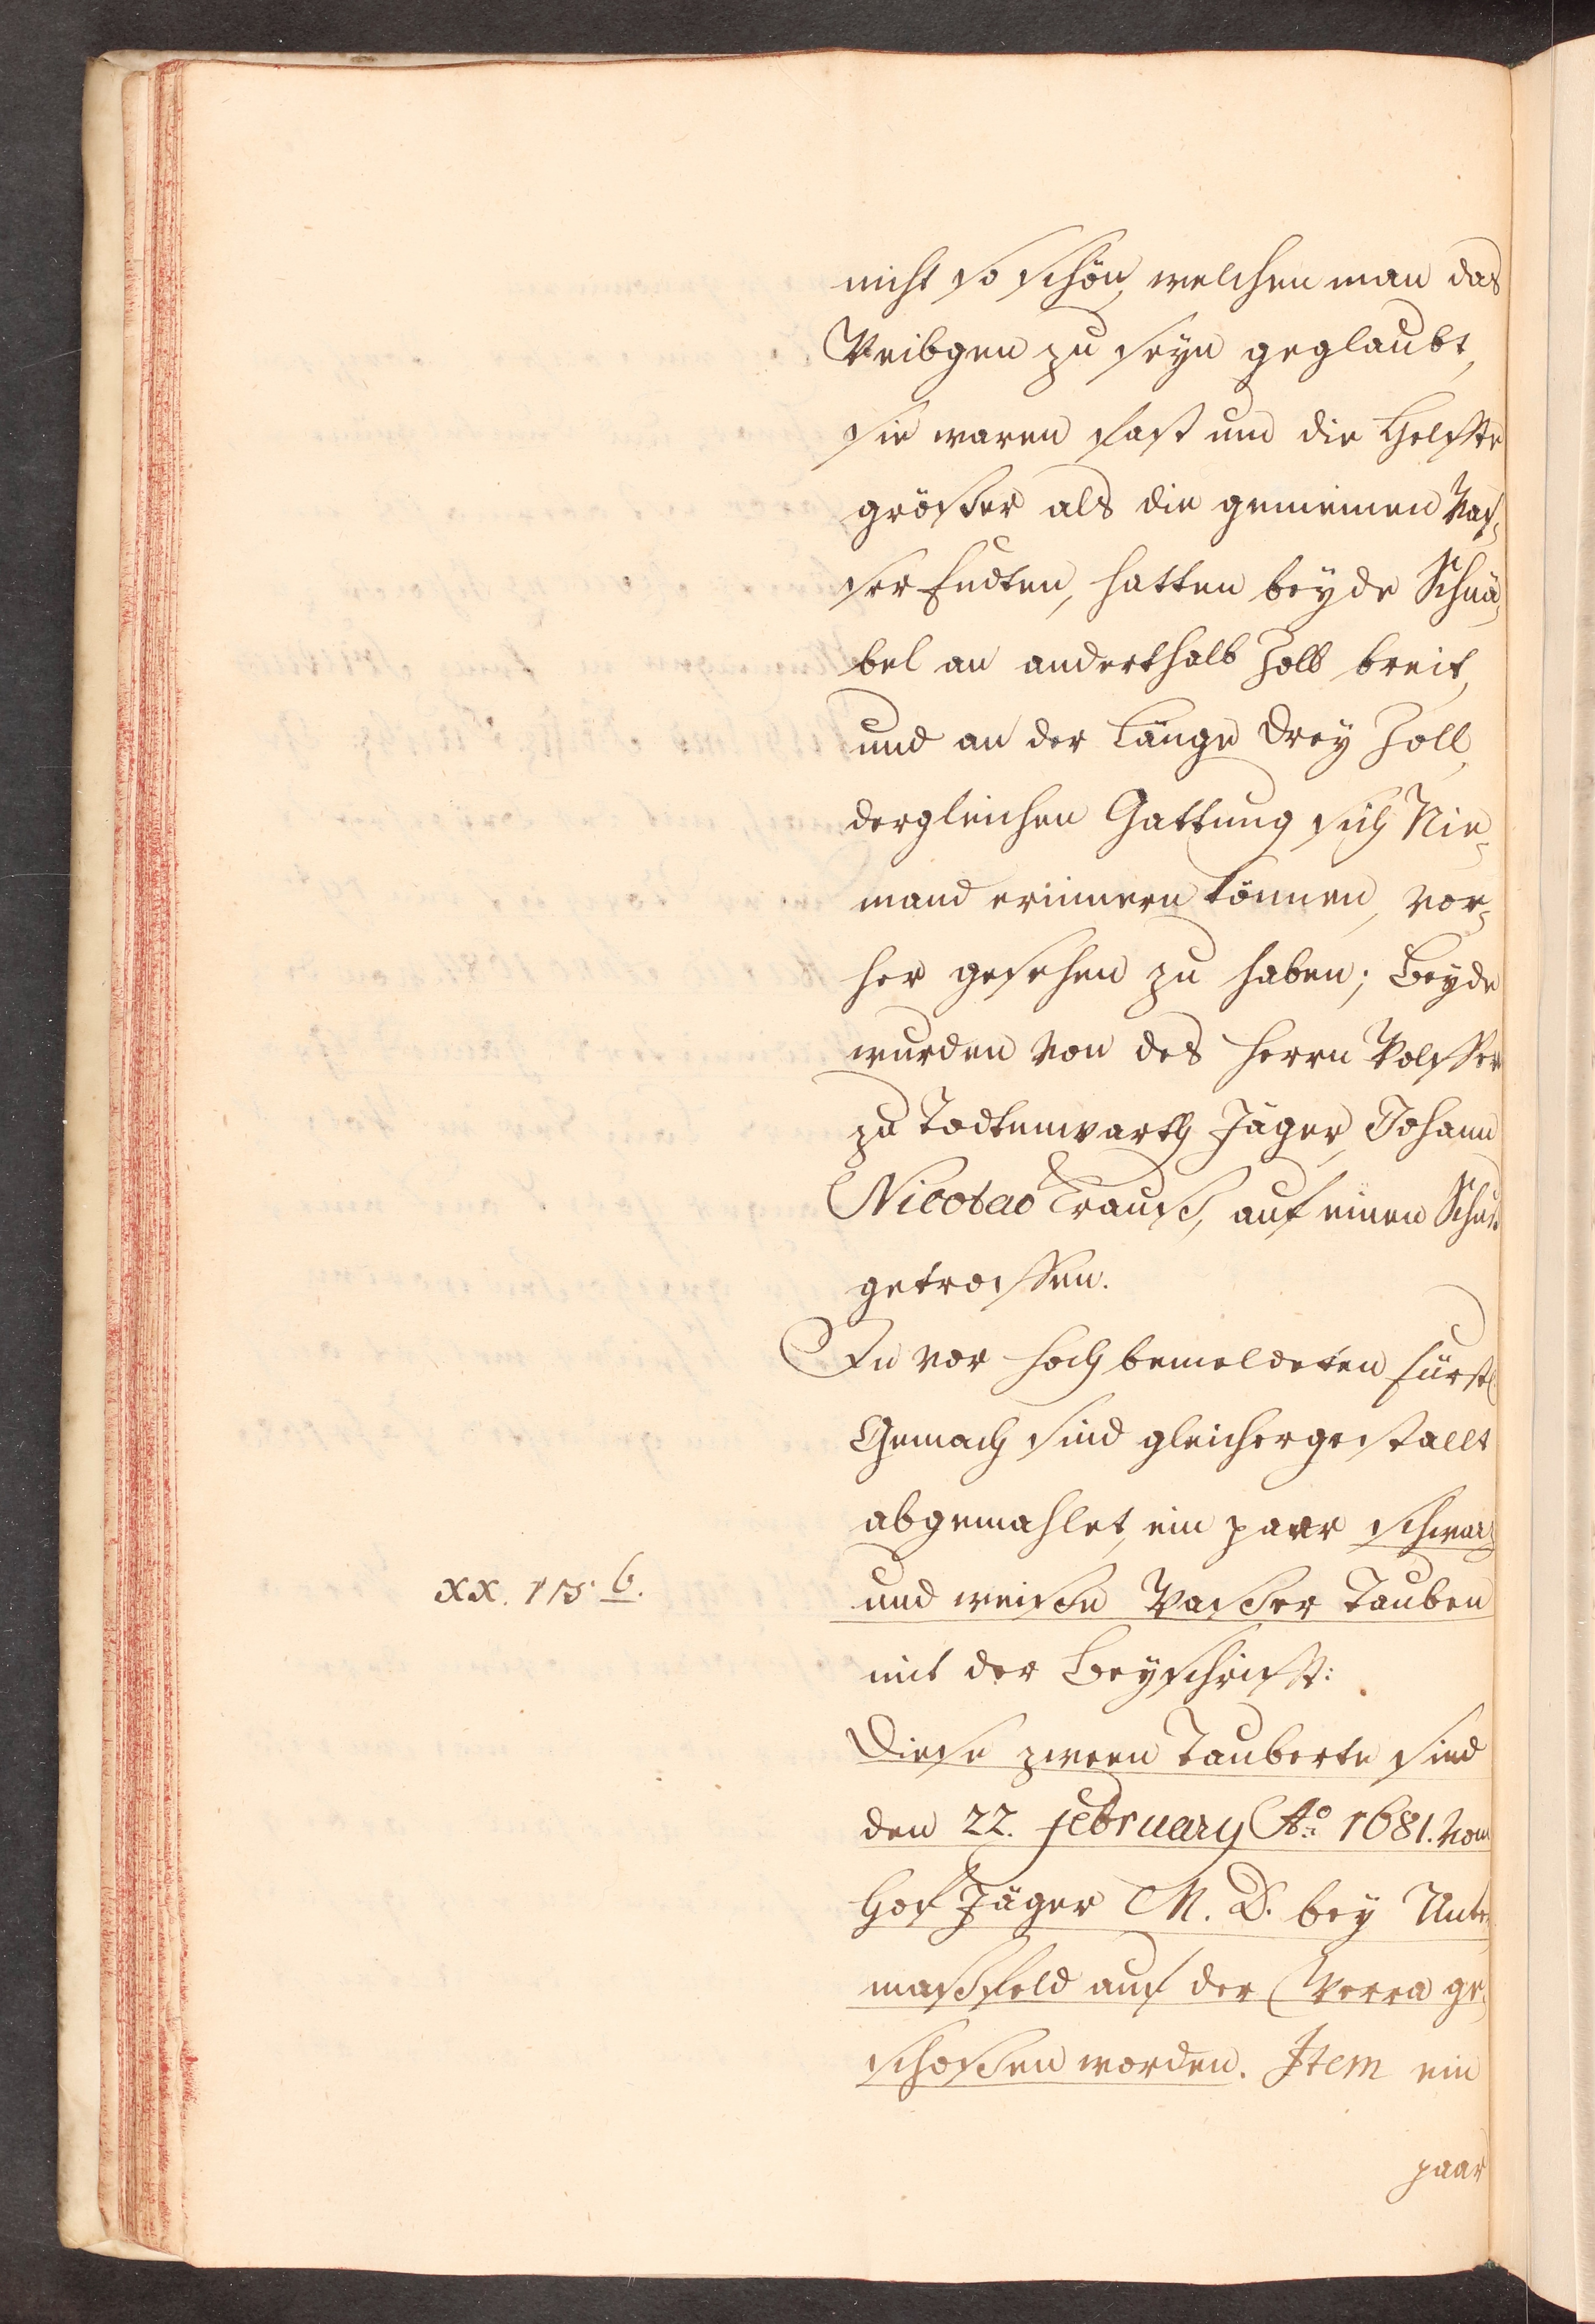 nicht so schön, welchen man das
Weibgen zu seyn geglaubt,
sie waren fast um die Helffte
größer als die gemeinen Was¬
ser Endten, hatten beyde Schnä¬
bel an anderthalb Zoll breit,
und an der Länge drey Zoll,
dergleichen Gattung sich Nie¬
mand erinnern können, vor¬
her gesehen zu haben; Beyde
wurden von des Herrn Wolffen
zu Todtenwarth Jäger, Johann
Nicolao Krauß, auf einen Schuß
getroffen.
In vor hochbemeldeten Fürstl.
Gemach sind gleichergestallt
abgemahlet, ein paar schwarz
xx. 115. b.
und weiße Waßer Tauben
mit der Beyschrifft:
Diese zween Tauberte sind
den 22. February Ao. 1681. vom
Hof Jäger M. D. bey Unter¬
maßfeld auf der Werra ge¬
schoßen worden. Item ein
paar